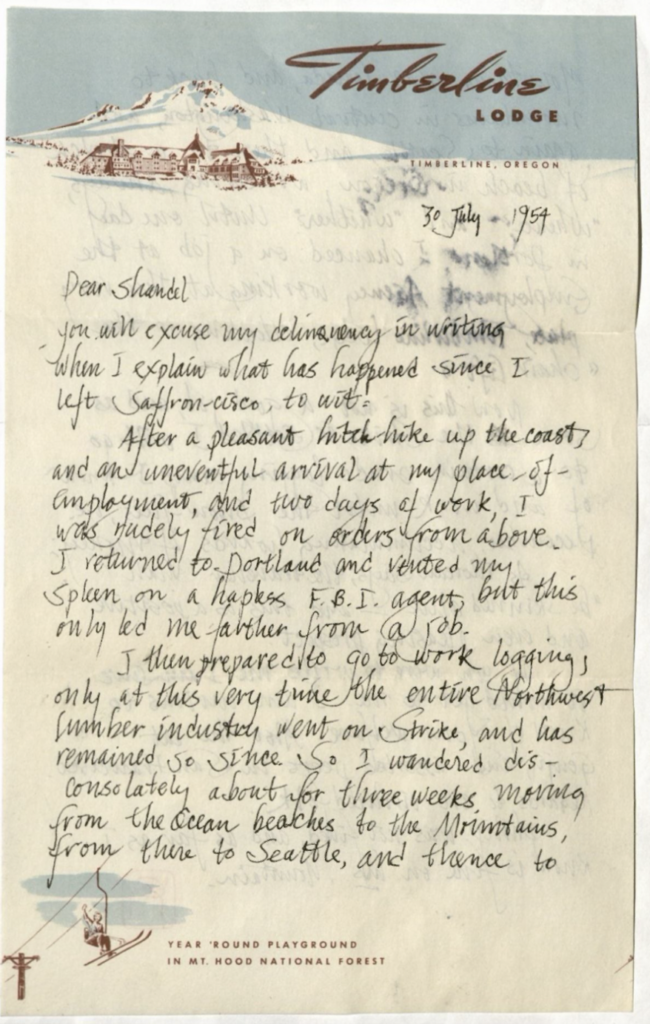 Timberline
LODGE
TIMBERLINE, OREGON
30 July 1954
Dear Shandel
you will excuse my delinquency in writing
when I explain what has happened since I
left Saffron-cisco, to wit:
After a pleasant hitch hike up the coast,
and an uneventful arrival at my place-of-
employment, and two days of work, I
was rudely fired on orders from above.
I returned to Portland and vented my
spleen on a hapless F.B.I. agent, but this
only led me farther from a job.
I then prepared to go to work logging,
only at this very time the entire Northwest
lumber industry went on strike, and has
remained so since. So I wandered dis-
consolately about for three weeks moving
from the Ocean beaches to the Mountains,
from there to Seattle, and thence to
YEAR 'ROUND PLAYGROUND
IN MT. HOOD NATIONAL FOREST